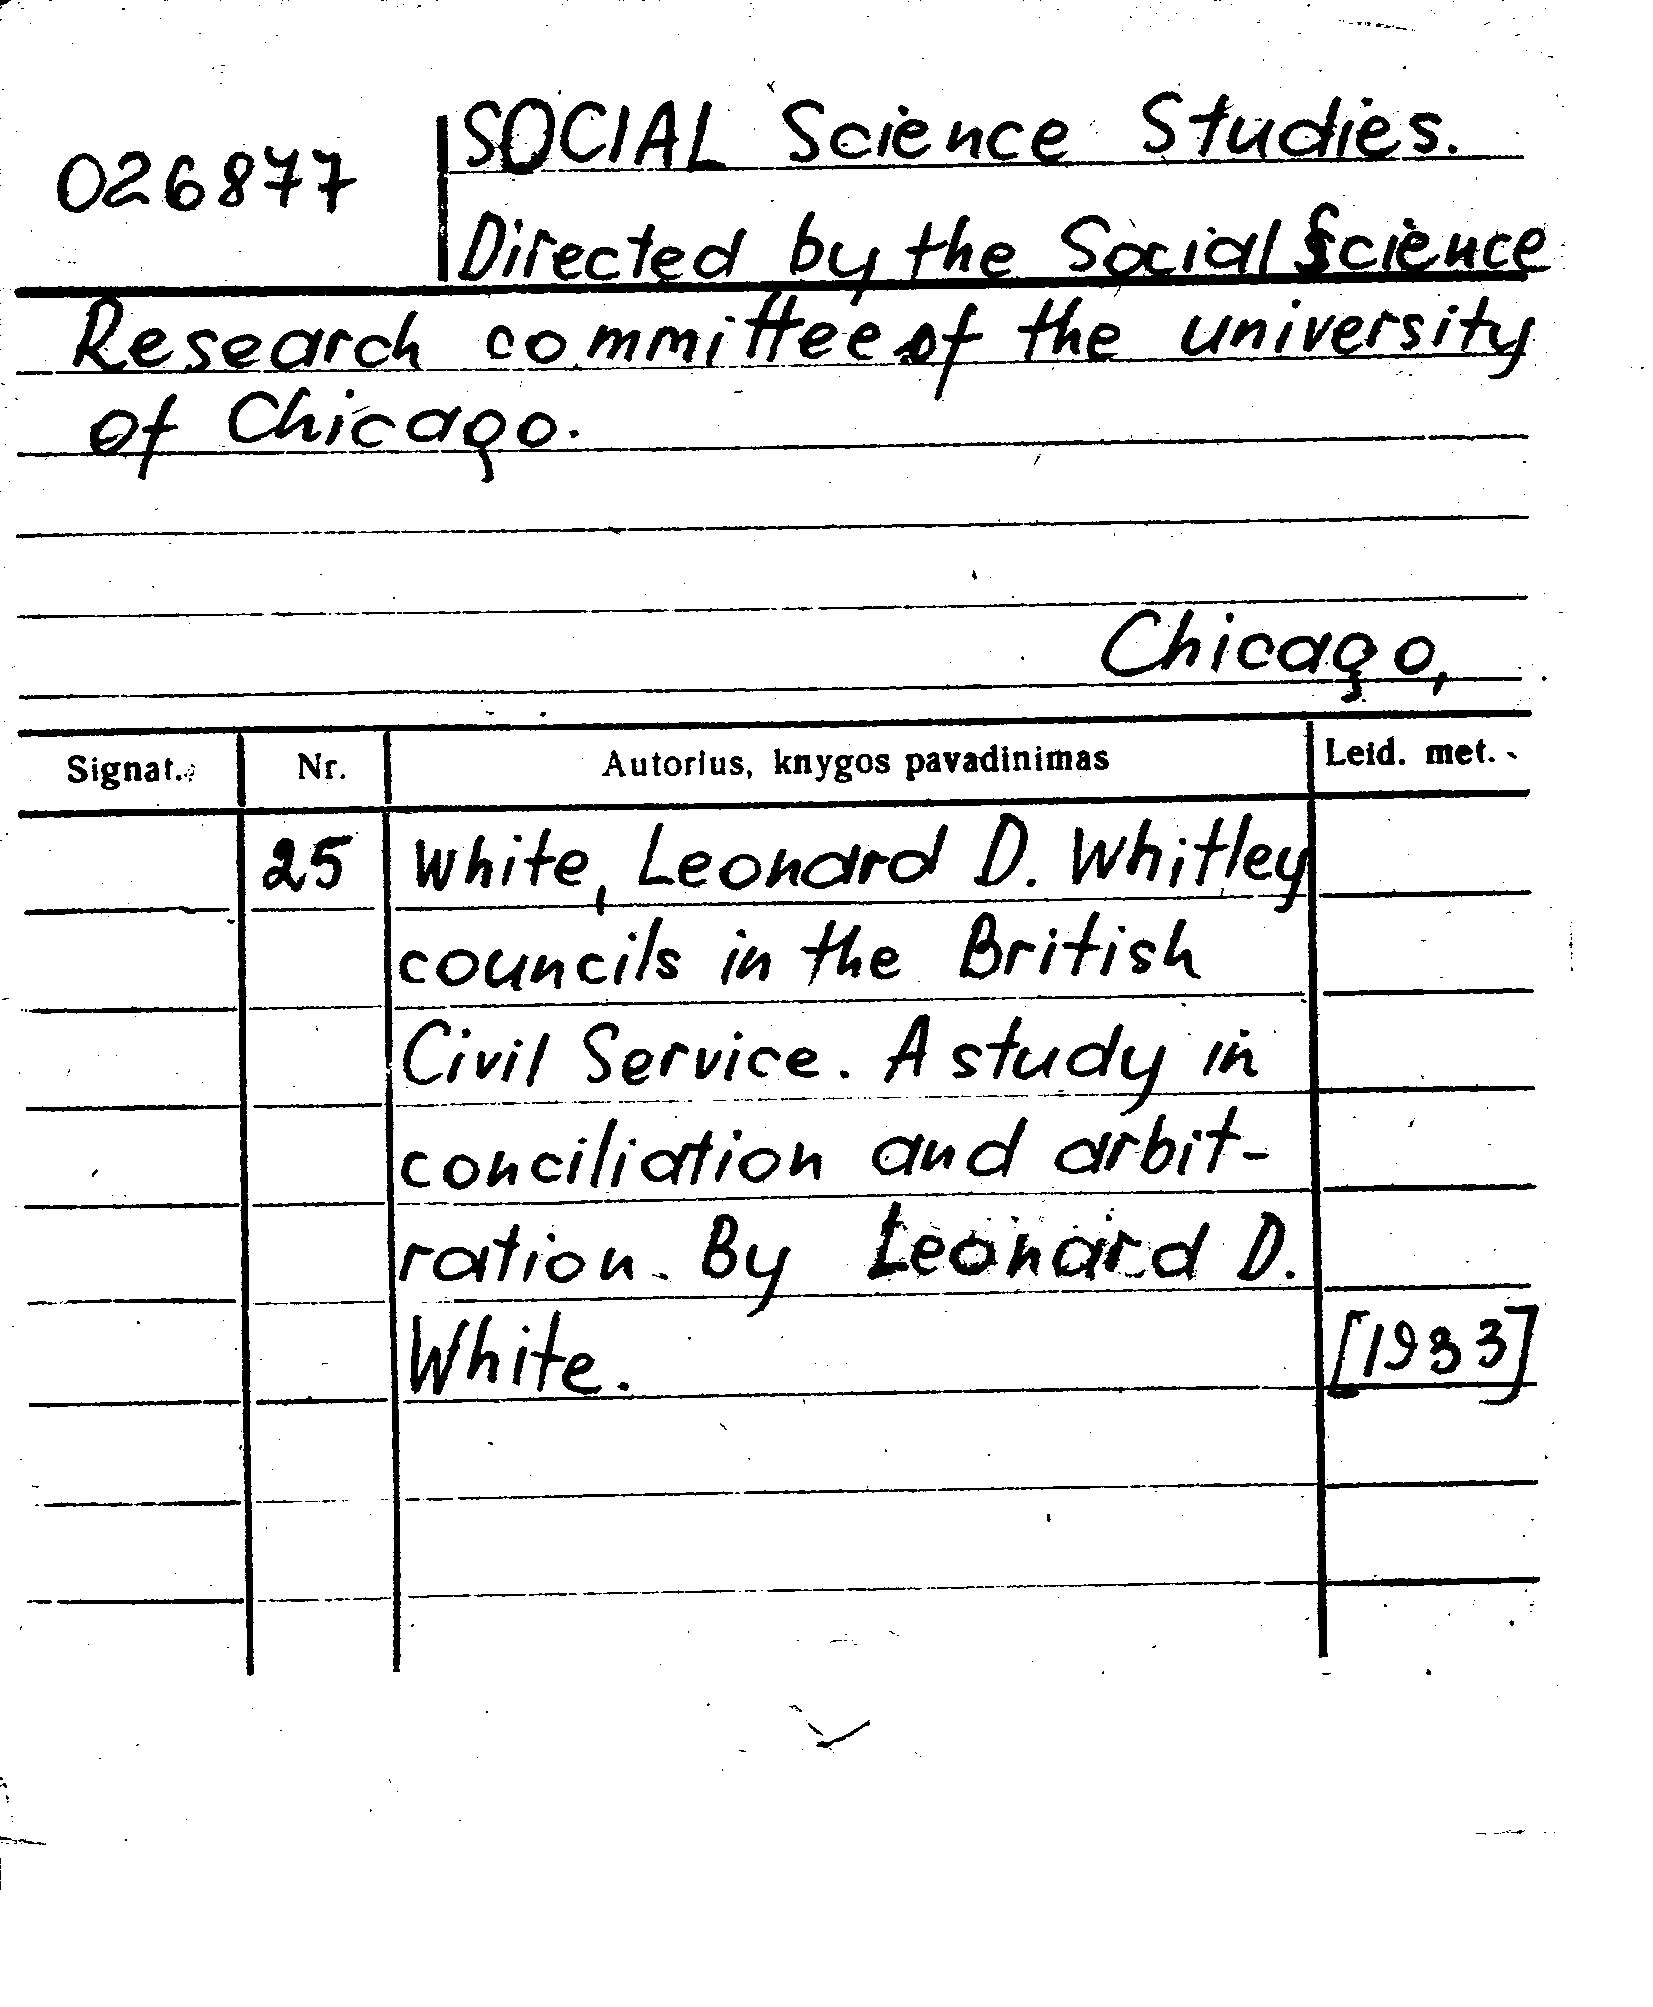 SOCIAL Science Studies.
026877
Directed by the Social Science
Research committee of the university
of Chicago.
Chicago,
Signat. Nr. Autorius, knygos pavadinimas Leid. met.
25 White, Leonard D. Whitley
councils in the British
Civil Service. A study in
conciliation and arbit-
ration. By Leonard D.
White. [1933]